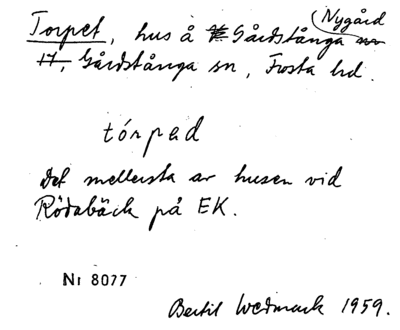 Torpet, hus å Gårdstånga Nygård
17, Gårdstånga sn, Frosta hd.
tórped
Det mellersta av husen vid
Rödabäck på EK.
Nr 8077
Bertil Wedmark 1959.